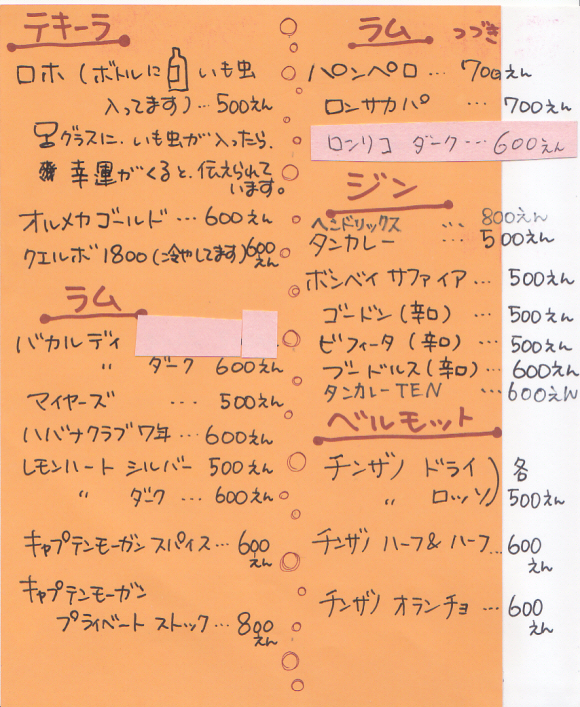 テキーラ
ロホ (ボトルに いも虫
入ってます) … 500えん
グラスに、いも虫が入ったら、
幸運がくると、伝えられて
います。
オルメカゴールド … 600えん
クエルボ1800 (冷やしてます) 600えん
ラム
バカルディ
〃 ダーク 600えん
マイヤーズ … 500えん
ハバナクラブ7年 … 600えん
レモンハート シルバー 500えん
〃 ダーク … 600えん
キャプテンモーガン スパイス … 600えん
キャプテンモーガン
プライベート ストック … 800えん
ラム つづき
パンペロ … 700えん
ロンサカパ … 700えん
ロンリコ ダーク … 600えん
ジン
ヘンドリックス … 800えん
タンカレー … 500えん
ボンベイ サファイア … 500えん
ゴードン (辛口) … 500えん
ビフィータ (辛口) … 500えん
ブードルス (辛口) … 600えん
タンカレーTEN … 600えん
ベルモット
チンザノ ドライ) 各
〃 ロッソ) 500えん
チンザノ ハーフ&ハーフ … 600えん
チンザノ オランチョ … 600えん